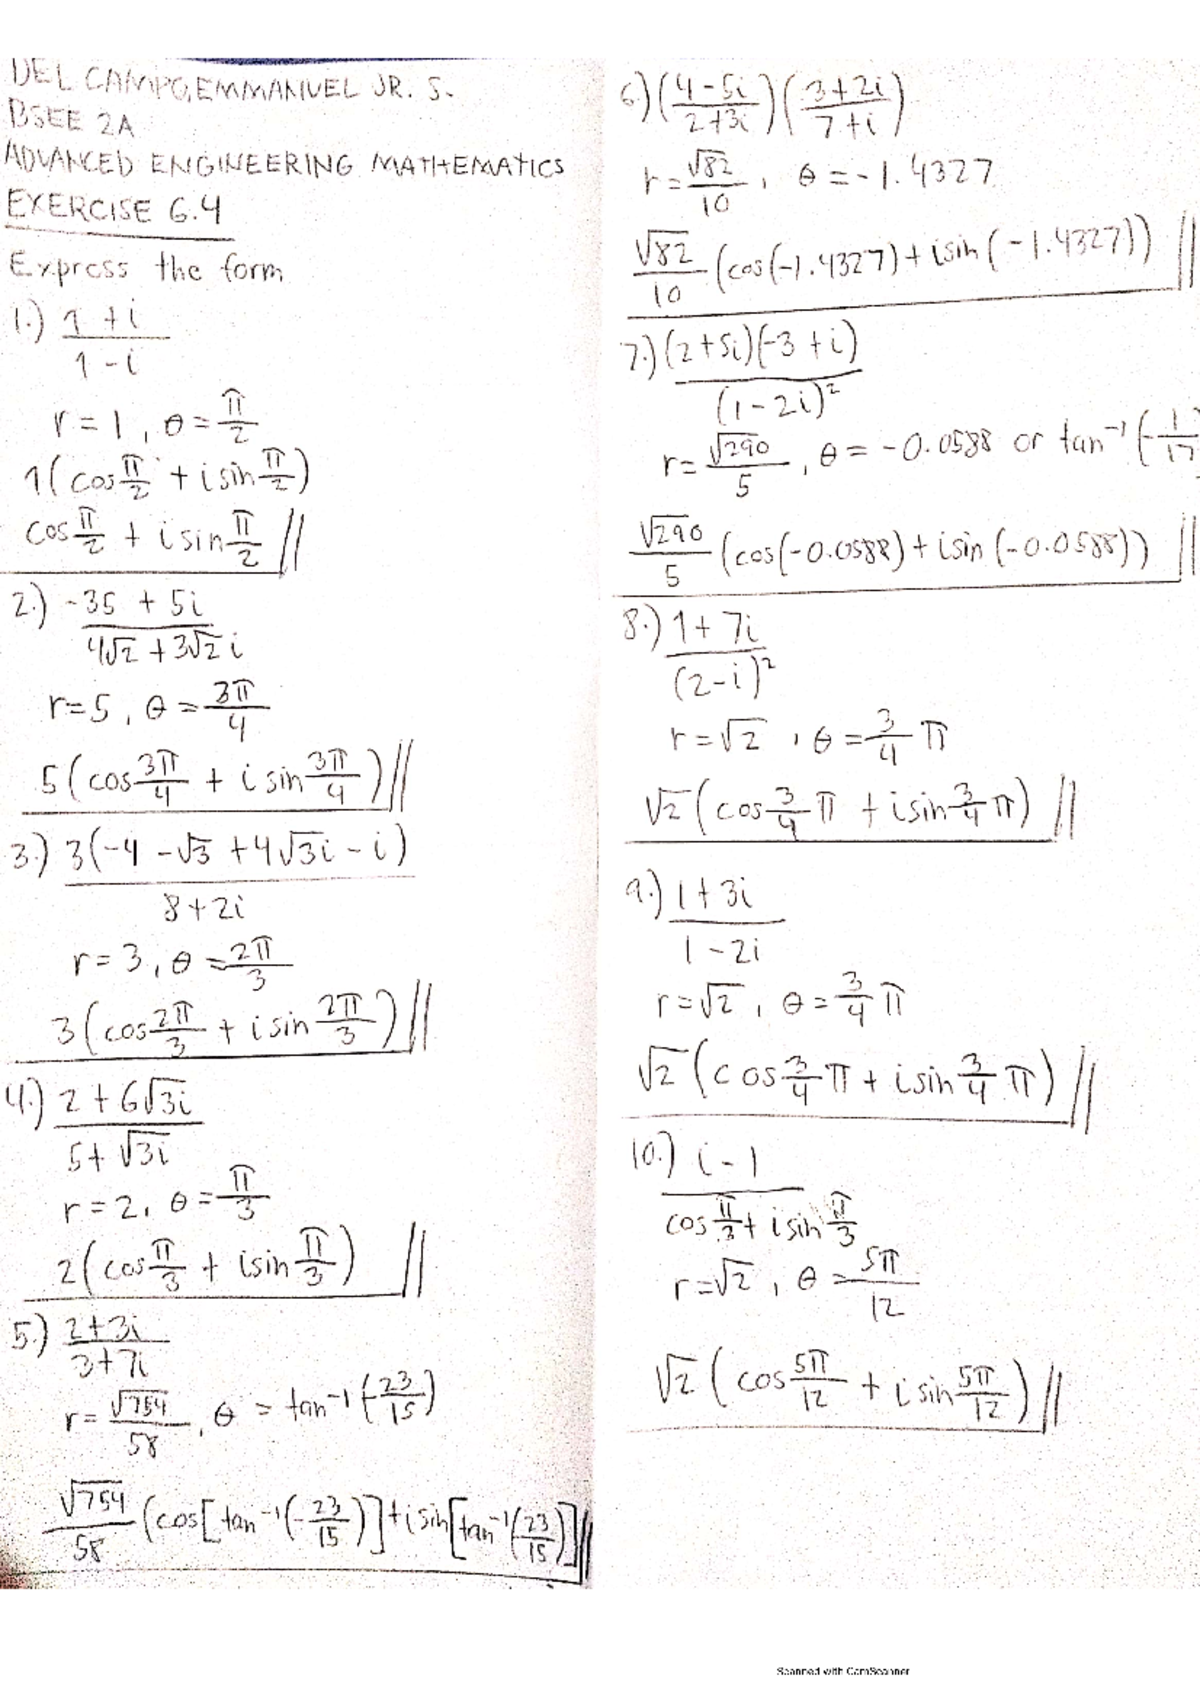 DEL CAMPO, EMMANUEL JR. S.
BSEE 2A
ADVANCED ENGINEERING MATHEMATICS
EXERCISE 6.4
Express the form
1.) (1 + i)/(1 - i)
r = 1, θ = π/2
1(cos π/2 + i sin π/2)
cos π/2 + i sin π/2 //
2.) (-35 + 5i)/(4√2 + 3√2 i)
r = 5, θ = 3π/4
5(cos 3π/4 + i sin 3π/4) //
3.) 3(-4 - √3 + 4√3i - i)/(8 + 2i)
r = 3, θ = 2π/3
3(cos 2π/3 + i sin 2π/3) //
4.) (2 + 6√3i)/(5 + √3i)
r = 2, θ = π/3
2(cos π/3 + i sin π/3) //
5.) (2 + 3i)/(3 + 7i)
r = √754/58, θ = tan⁻¹(-23/15)
√754/58 (cos[tan⁻¹(-23/15)] + i sin[tan⁻¹(23/15)] //
6.) ((4 - 5i)/(2 + 3i))((3 + 2i)/(7 + i))
r = √82/10, θ = -1.4327
√82/10 (cos(-1.4327) + i sin(-1.4327)) //
7.) (2 + 5i)(-3 + i)/(1 - 2i)²
r = √290/5, θ = -0.0588 or tan⁻¹(-1/17
√290/5 (cos(-0.0588) + i sin(-0.0588)) //
8.) (1 + 7i)/(2 - i)²
r = √2, θ = 3/4 π
√2 (cos 3/4 π + i sin 3/4 π) //
9.) (1 + 3i)/(1 - 2i)
r = √2, θ = 3/4 π
√2 (cos 3/4 π + i sin 3/4 π) //
10.) (i - 1)/(cos π/3 + i sin π/3)
r = √2, θ = 5π/12
√2 (cos 5π/12 + i sin 5π/12) //
Scanned with CamScanner